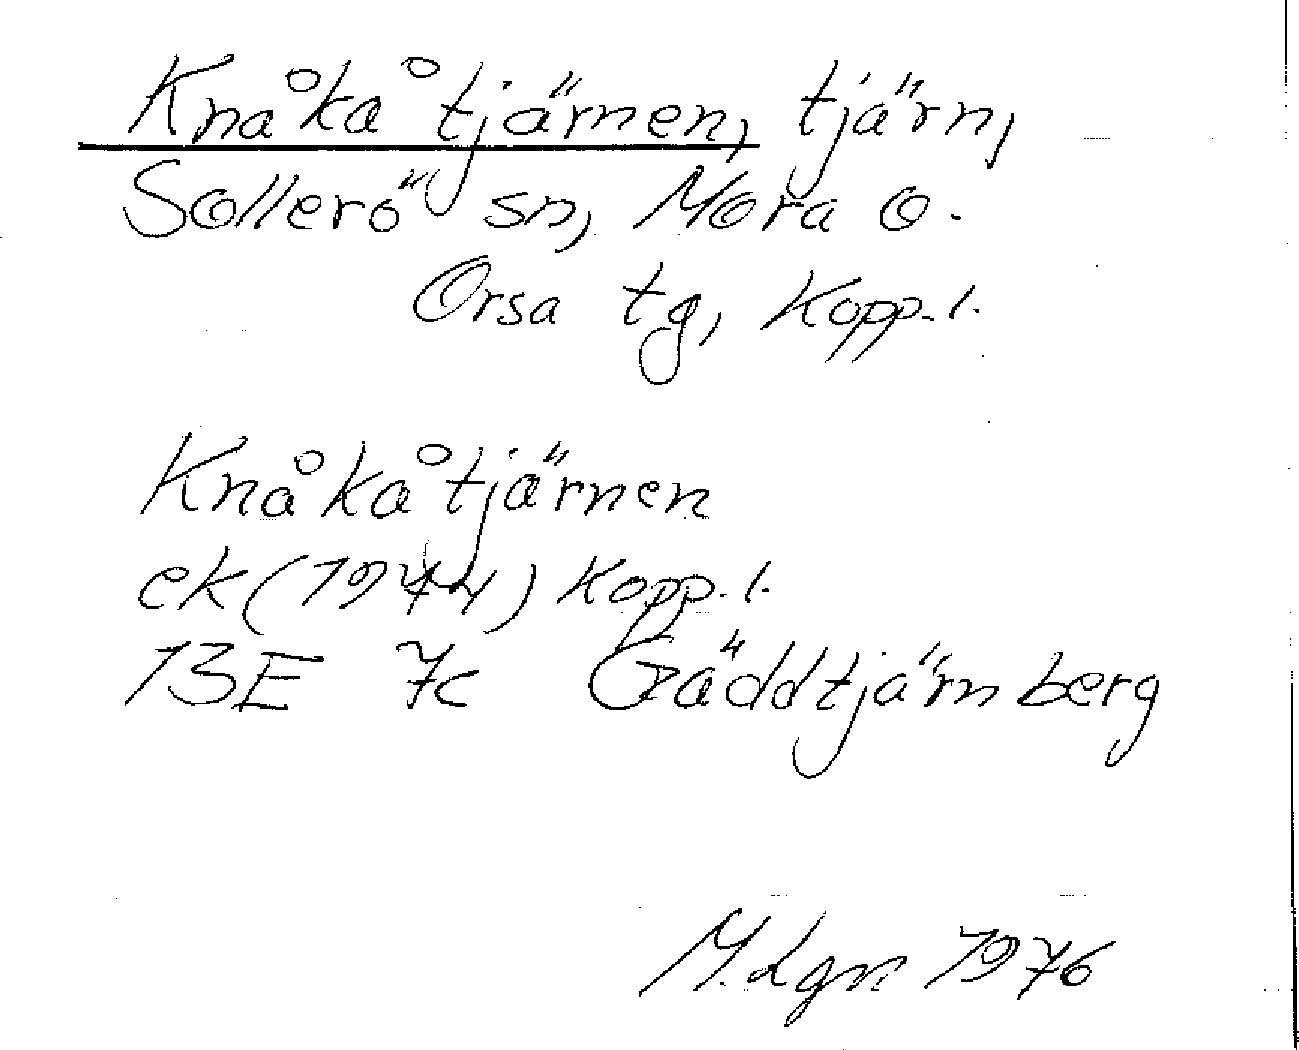 Knåkåtjärnen, tjärn,
Sollerö sn, Mora o.
Orsa tg, Kopp. l.
Knåkåtjärnen
ek (1944) Kopp. l.
13E 7c Gäddtjärnberg
M. Lgn 1976